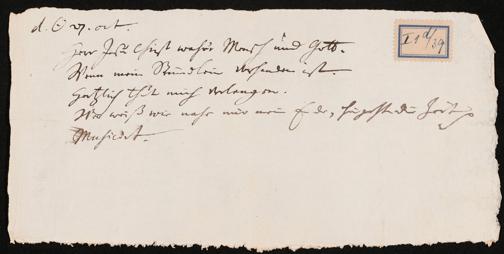 d. ☉ 27. oct.
XI d/39
Herr Jesu Christ wahr' Mensch und Gott.
Wenn mein Stündlein vorhanden ist.
Hertzlich thut mich verlangen.
Wer weiß wie nahe mir mein Ende,
Musicirt.